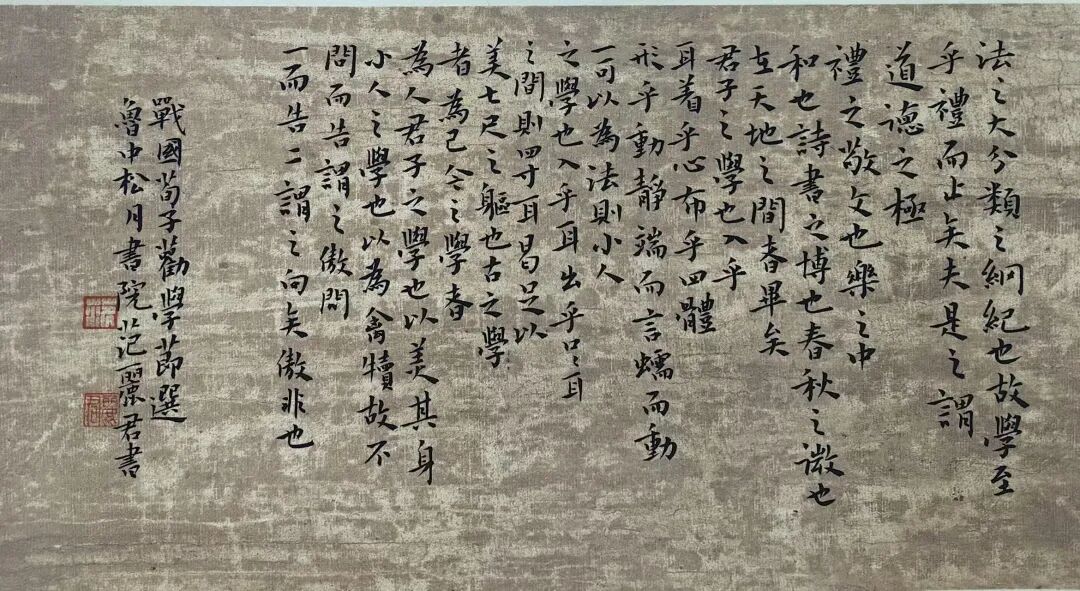 法之大分類之綱紀也故學至
乎禮而止矣夫是之謂
道德之極
禮之敬文也樂之中
和也詩書之博也春秋之微也
在天地之間者畢矣
君子之學也入乎
耳着乎心布乎四體
形乎動靜端而言蠕而動
一可以為法則小人
之學也入乎耳出乎口〻耳
之間則四寸耳曷足以
美七尺之軀也古之學
者為己今之學者
為人君子之學也以美其身
小人之學也以為禽犢故不
問而告謂之傲問
一而告二謂之向矣傲非也
戰國荀子勸學節選
魯中松月書院范麗君書